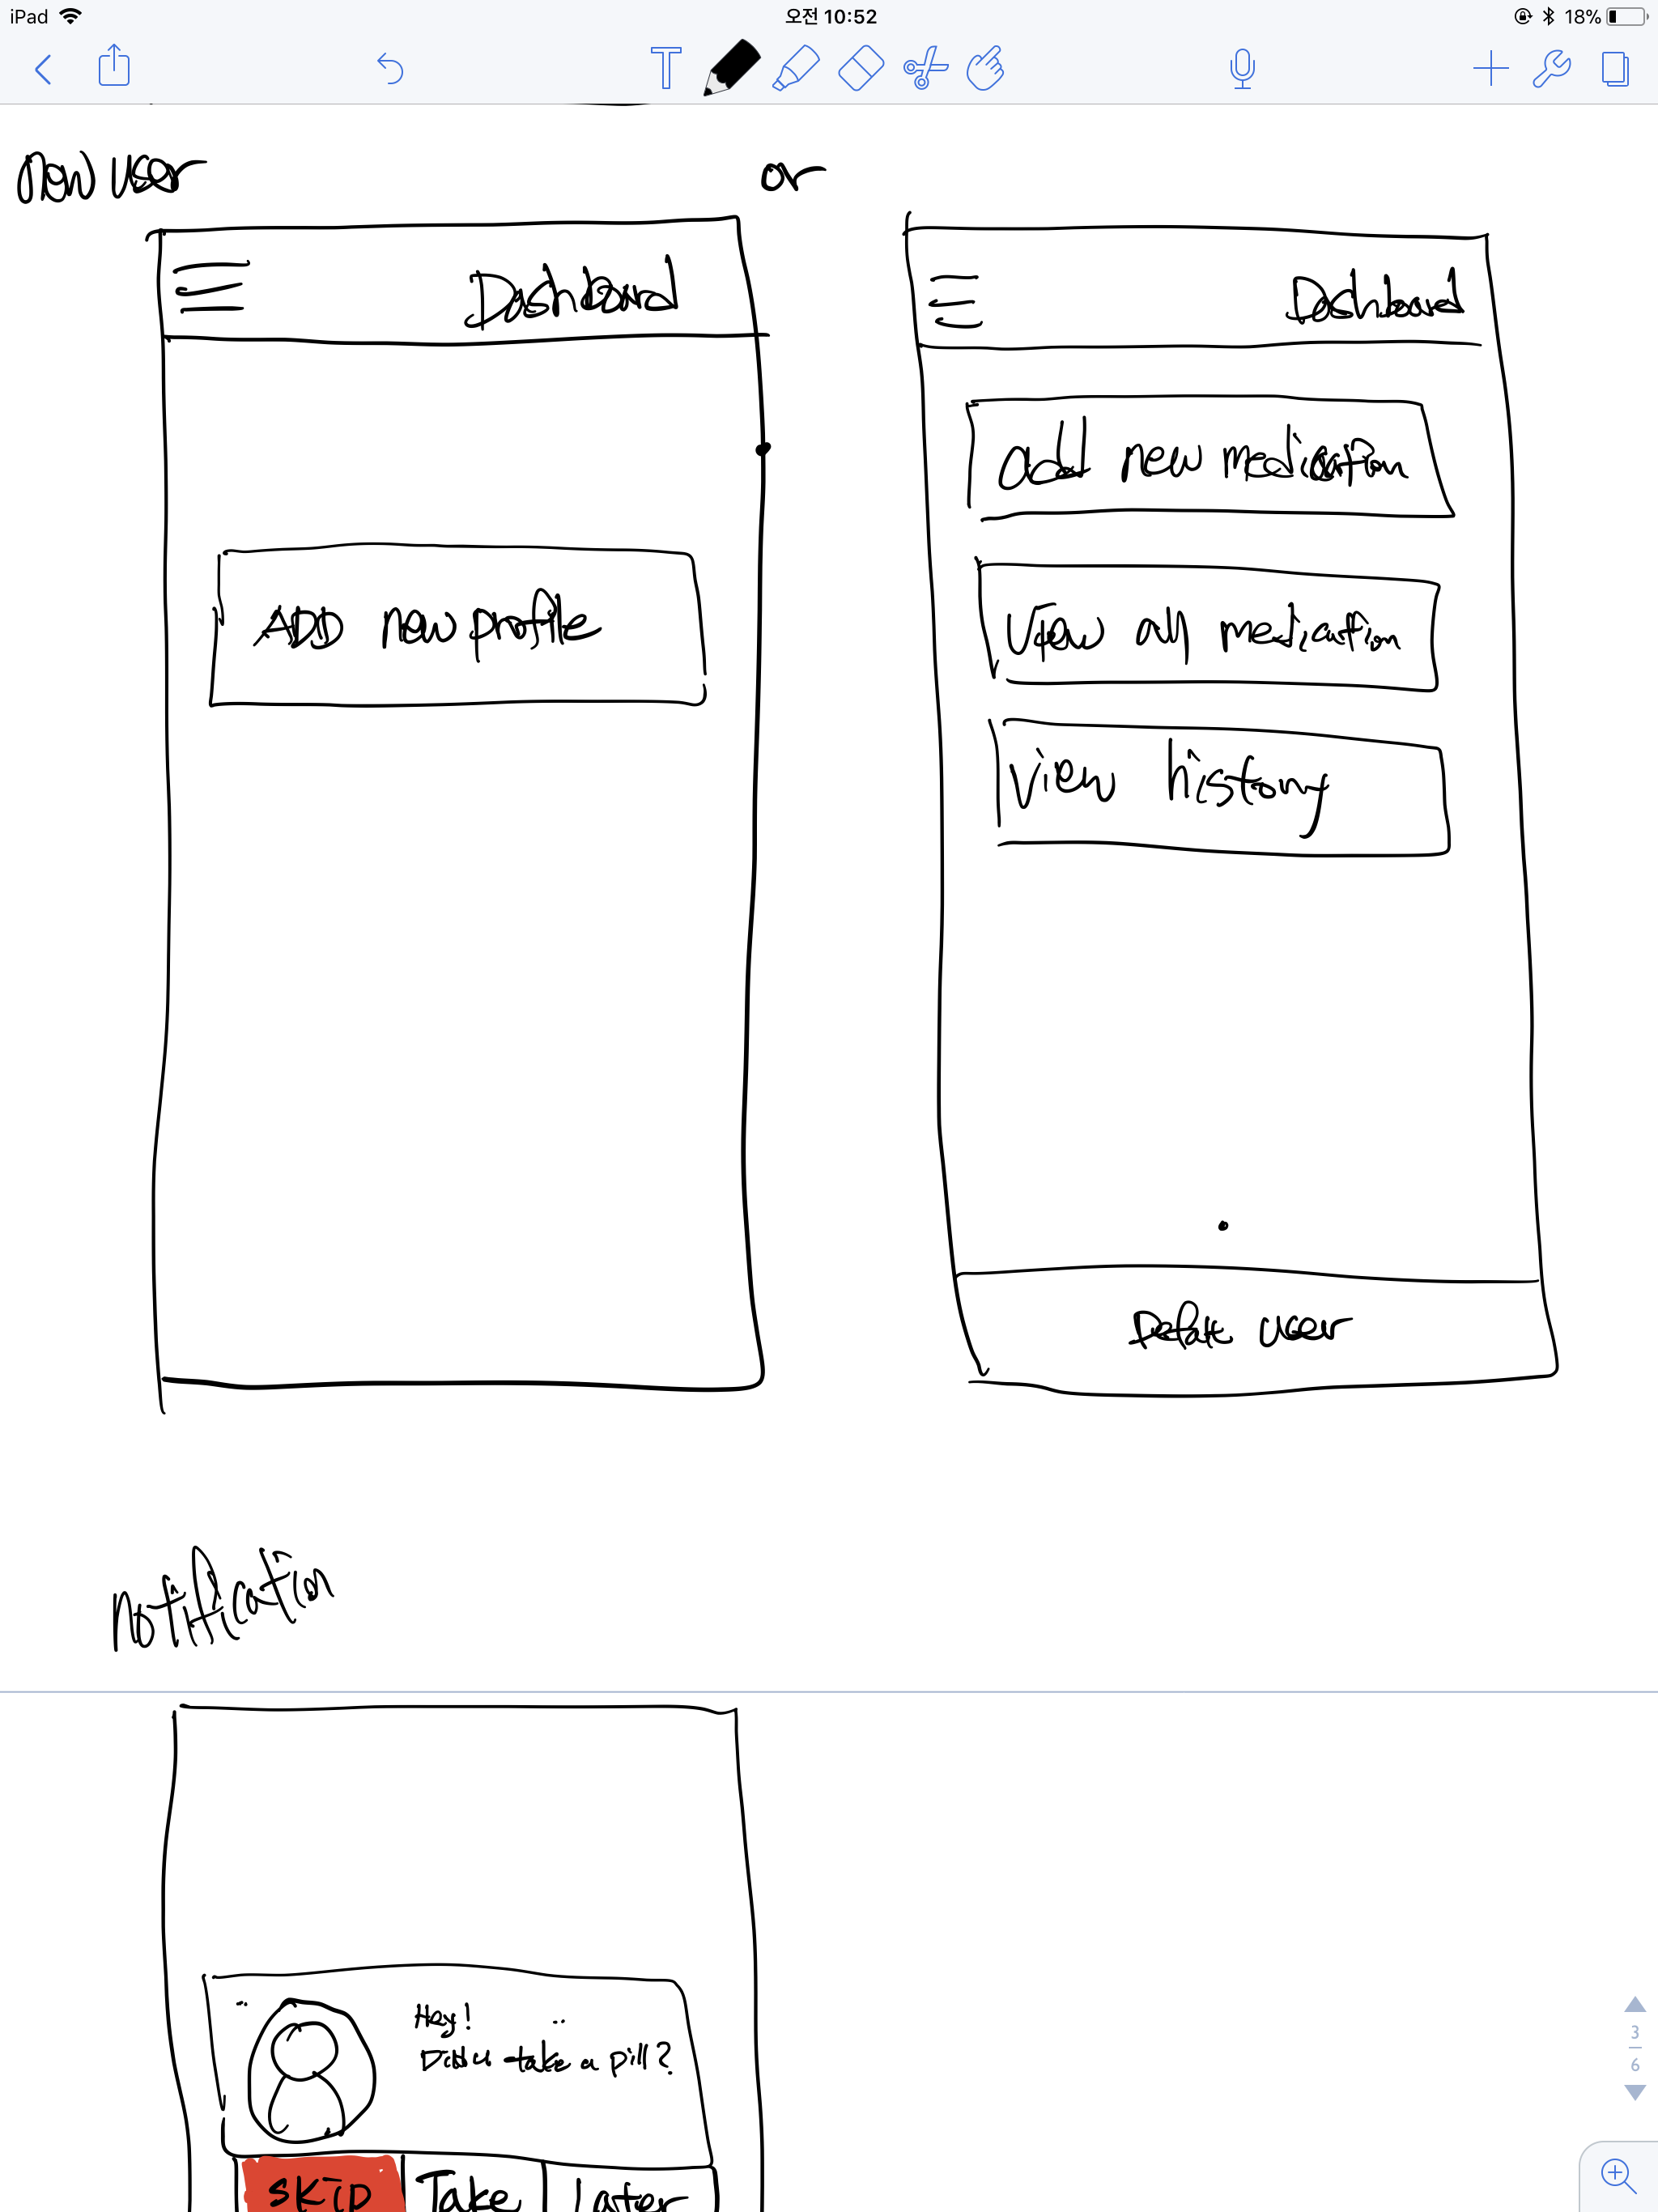 iPad 오전 10:52 18%
new user
or
Dashboard
ADD new profile
Dashboard
add new medication
View all medication
View history
user
notification
Hey!
Did u take a pill?
Skip Take Later
3
6